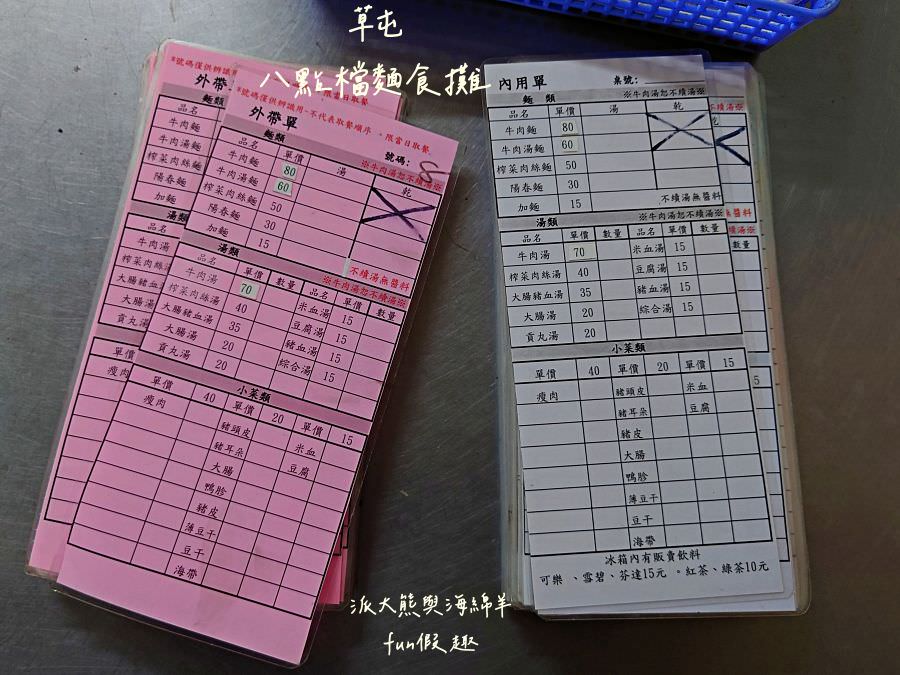 草屯
八點檔麵食攤
*號碼僅供辨識用
外帶
限當日取餐
麵類
品名
牛肉麵
牛肉湯麵
榨菜肉絲麵
陽春麵
加麵
湯類
品名
牛肉湯
榨菜肉絲湯
大腸豬血湯
大腸湯
貢丸湯
單價
瘦肉
*號碼僅供辨識用~不代表取餐順序。限當日取餐
外帶單 號碼: 8
麵類 ※牛肉湯恕不續湯※
品名 單價 湯 乾
牛肉麵 80
牛肉湯麵 60
榨菜肉絲麵 50
陽春麵 30
加麵 15
不續湯無醬料
湯類 ※牛肉湯恕不續湯※
品名 單價 數量 品名 單價 數量
牛肉湯 70 米血湯 15
榨菜肉絲湯 40 豆腐湯 15
大腸豬血湯 35 豬血湯 15
大腸湯 20 綜合湯 15
貢丸湯 20
小菜類
單價 40 單價 20 單價 15
瘦肉 豬頭皮 米血
豬耳朵 豆腐
大腸
鴨胗
豬皮
薄豆干
豆干
海帶
內用單 桌號:
麵類 ※牛肉湯恕不續湯※
品名 單價 湯 乾
牛肉麵 80
牛肉湯麵 60
榨菜肉絲麵 50
陽春麵 30
加麵 15 不續湯無醬料
湯類 ※牛肉湯恕不續湯※
品名 單價 數量 品名 單價 數量
牛肉湯 70 米血湯 15
榨菜肉絲湯 40 豆腐湯 15
大腸豬血湯 35 豬血湯 15
大腸湯 20 綜合湯 15
貢丸湯 20
小菜類
單價 40 單價 20 單價 15
瘦肉 豬頭皮 米血
豬耳朵 豆腐
豬皮
大腸
鴨胗
薄豆干
豆干
海帶
冰箱內有販賣飲料
可樂、雪碧、芬達15元 。紅茶、綠茶10元
派大熊與海綿羊
fun假趣